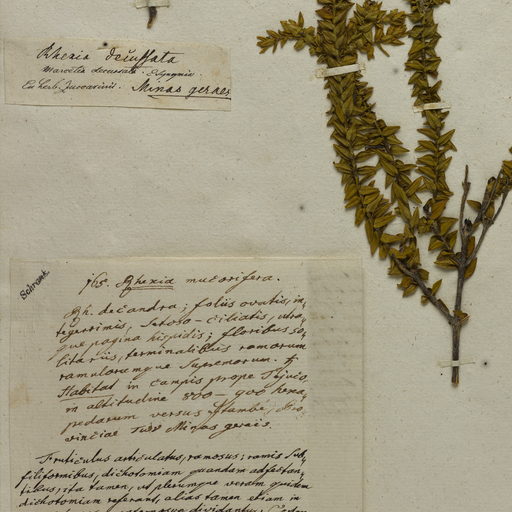 Rhexia decussata
Marcetia decussata
Ex herb. Zuccarinii. Minas geraes
Schrank
165. Rhexia mucorifera.
Rh. decandra; foliis ovatis, in-
tegerrimis, setoso-ciliatis, utra-
que pagina hispidis; floribus so-
litariis, terminalibus ramorum
ramulorumque supremorum. ♄
Habitat in campis prope Tejuco,
in altitudine 800-900 hexa-
pedarum versus Itambé, Pro-
vinciae Minas gerais.
Fruticulus articulatus, ramosus; ramis sub-
filiformibus, dichotomiam quandam adfectan-
tibus, ita tamen, ut plerumque veram quidem
dichotomiam referant, alias tamen etiam in
dividantur;